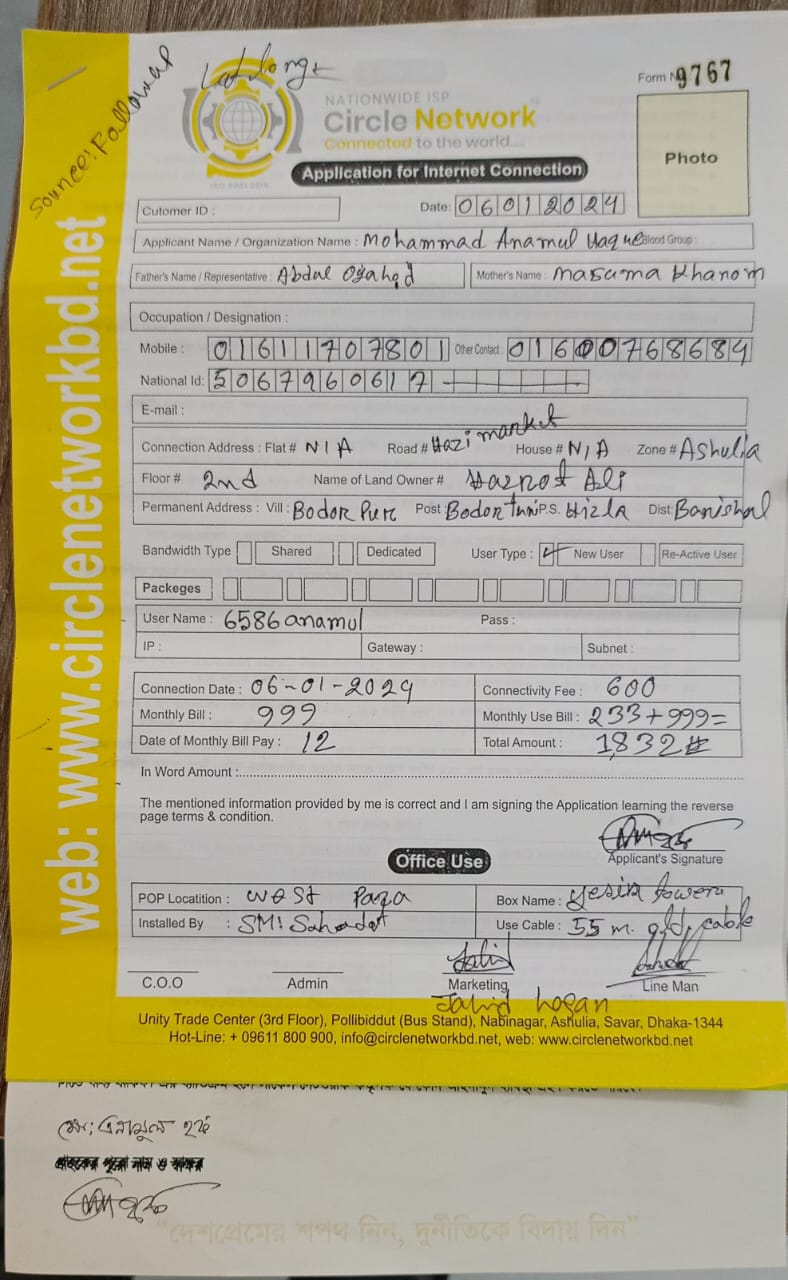 Source: Followal
Lat long
Form N 9767
NATIONWIDE ISP
Circle Network
Connected to the world....
ISO 9001:2015
Application for Internet Connection
Photo
Cutomer ID :
Date: 06012024
Applicant Name / Organization Name : Mohammad Anamul Haque Blood Group:
Father's Name / Representative : Abdul Oyahed Mother's Name : Masuma Khanom
Occupation / Designation :
Mobile : 01611707801 Other Contact : 01600768684
National Id: 5067960617
E-mail :
Connection Address : Flat # N/A Road # Hazi market House # N/A Zone # Ashulia
Floor # 2nd Name of Land Owner # Hazrot Ali
Permanent Address : Vill : Bodor Pur Post : P.S. Hizla Dist: Barishal
Bandwidth Type Shared Dedicated User Type : New User Re-Active User
Packeges
User Name : 6586anamul Pass :
IP : Gateway : Subnet :
Connection Date : 06-01-2024 Connectivity Fee : 600
Monthly Bill : 999 Monthly Use Bill : 233+999=
Date of Monthly Bill Pay : 12 Total Amount : 1832
In Word Amount :
The mentioned information provided by me is correct and I am signing the Application learning the reverse
page terms & condition.
Applicant's Signature
Office Use
POP Locatition : West Para Box Name : Yesin tower
Installed By : SM: Sahadat Use Cable : 55 m. cable
C.O.O Admin Marketing Line Man
Jahid hosan
Unity Trade Center (3rd Floor), Pollibiddut (Bus Stand), Nabinagar, Ashulia, Savar, Dhaka-1344
Hot-Line: + 09611 800 900, info@circlenetworkbd.net, web: www.circlenetworkbd.net
web: www.circlenetworkbd.net
মো: এনামুল হক
গ্রাহকের পুরো নাম ও স্বাক্ষর
“দেশপ্রেমের শপথ নিন, দুর্নীতিকে বিদায় দিন”